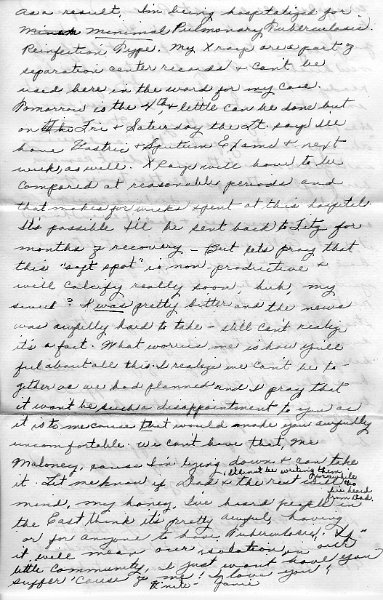 As a result, I'm being hospitalized for
Minimal Pulmonary Tuberculosis.
Reinfection Type. My Xrays are part of
separation center records & can't be
used here in the ward for my case.
Tomorrow is the 4th, & little can be done but
on Fri & Saturday the Lt. says I'll
have Gastric & Sputum Exams & next
week as well. X Rays will have to be
compared at reasonable periods and
that makes for weeks spent at this hospital
It's possible I'll be sent back to Fitz for
months of recovery - But lets pray that
this "soft spot" is non productive &
will calcify really soon, huh, my
sweet? I was pretty bitter and the news
was awfully hard to take - still can't realize
it's a fact. What worries me is how you'll
feel about all this. I realize we can't be to-
gether as we had planned and I pray that
it won't be such a disappointment to you as
it is to me cause that would make you awfully
uncomfortable. We can't have that Mr
Maloney, cause I'm lying down & can take
it. Let me know if Dad & the rest
I'll not be writing them
mind, my honey, I've heard people in
the East think it's pretty awful, having
or for anyone to have, Tuberculosis. If
it will mean our isolation in our
little community, I just won't have you
suffer 'cause of me! I love you!
Janie